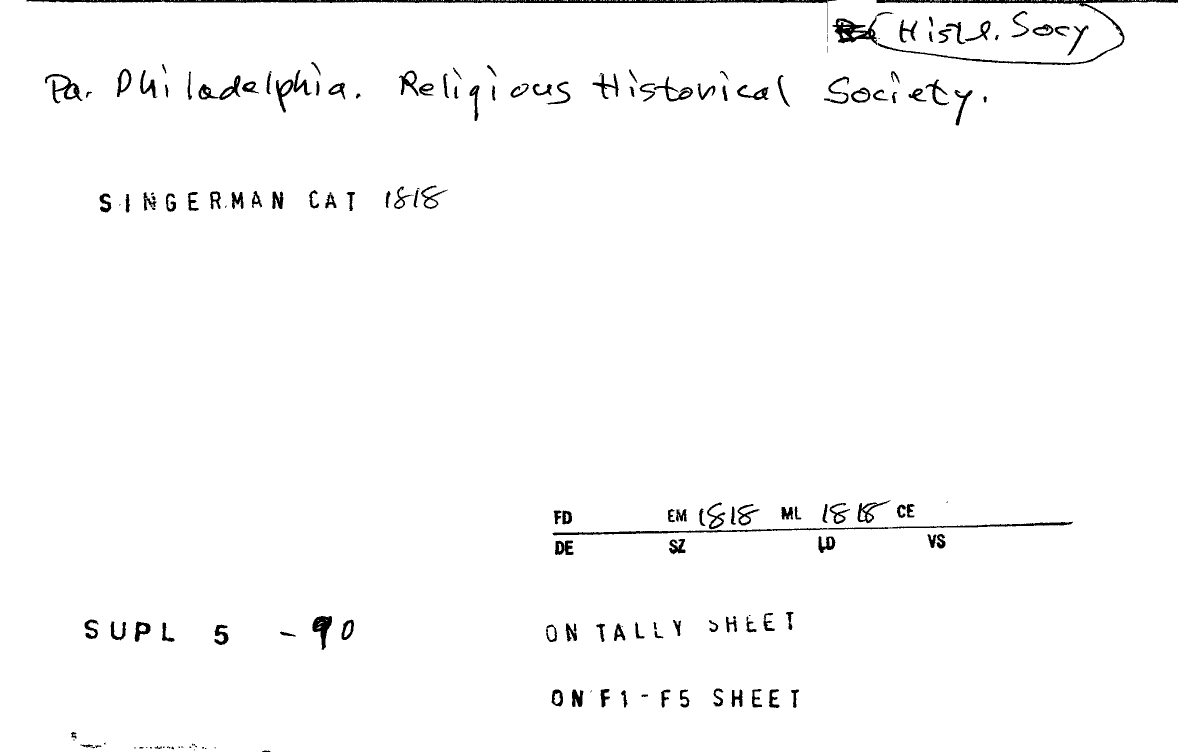 (Histl. Socy)
Pa. Philadelphia. Religious Historical Society.
SINGERMAN CAT 1818
FD EM 1818 ML 1818 CE
DE SZ LD VS
SUPL 5 -90
ON TALLY SHEET
ON F1-F5 SHEET